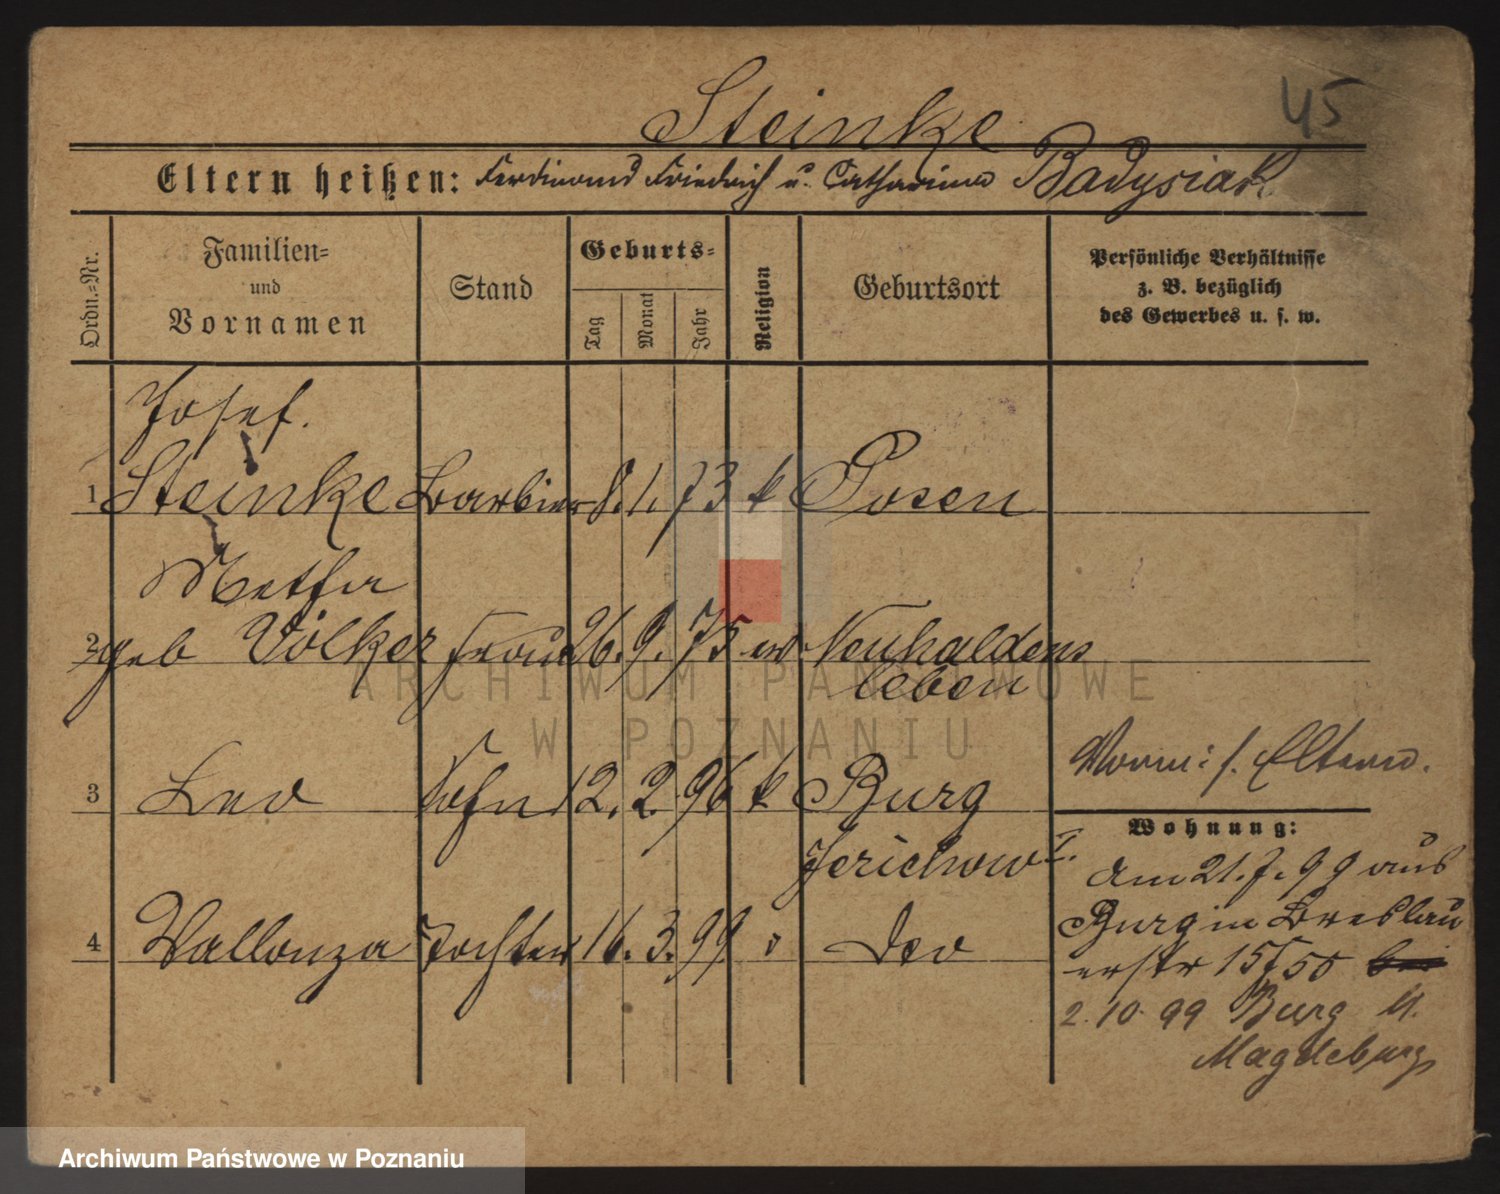 Steinke
45
Eltern heißen: Ferdinand Friedrich u. Catharina Badysiak
Ordn.-Nr.
Familien-
und
Vornamen
Stand
Geburts-
Tag
Monat
Jahr
Religion
Geburtsort
Persönliche Verhältnisse
z. B. bezüglich
des Gewerbes u. s. w.
Josef.
1 Steinke Barbier 8. 1. 73 k Posen
Metha
2 geb Völker Frau 26. 9. 75 ev Neuhaldens
leben
3 Leo Sohn 12. 2. 96 k Burg
Jerichow I.
4 Wallonza Tochter 16. 3. 99 " Deo
s. Eltern.
Wohnung:
Am 21. 7. 99 aus
Burg in Breslau
2. 10 99 Burg
Magdeburg
ARCHIWUM PAŃSTWOWE
W POZNANIU
Archiwum Państwowe w Poznaniu